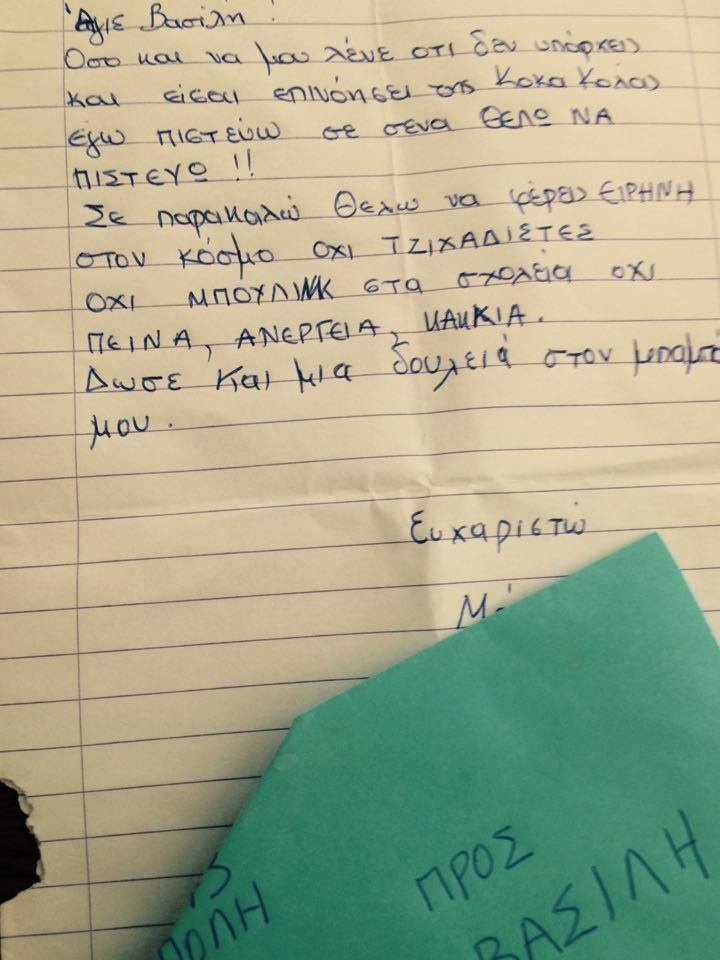 Άγιε Βασίλη!
Οσο και να μου λένε οτι δεν υπάρχεις
και είσαι επινόησει της Κοκα Κολας
εγω πιστεύω σε σενα θελω ΝΑ
ΠΙΣΤΕΥΩ!!
Σε παρακαλώ θελω να φέρεις ΕΙΡΗΝΗ
στον κόσμο οχι ΤΖΙΧΑΔΙΣΤΕΣ
οχι ΜΠΟΥΛΙΝΚ στα σχολεία οχι
ΠΕΙΝΑ, ΑΝΕΡΓΕΙΑ, ΚΑΚΚΙΑ.
Δωσε και μια δουλειά στον μπαμπά
μου.
Ευχαριστώ
ΠΡΟΣ
ΒΑΣΙΛΗ